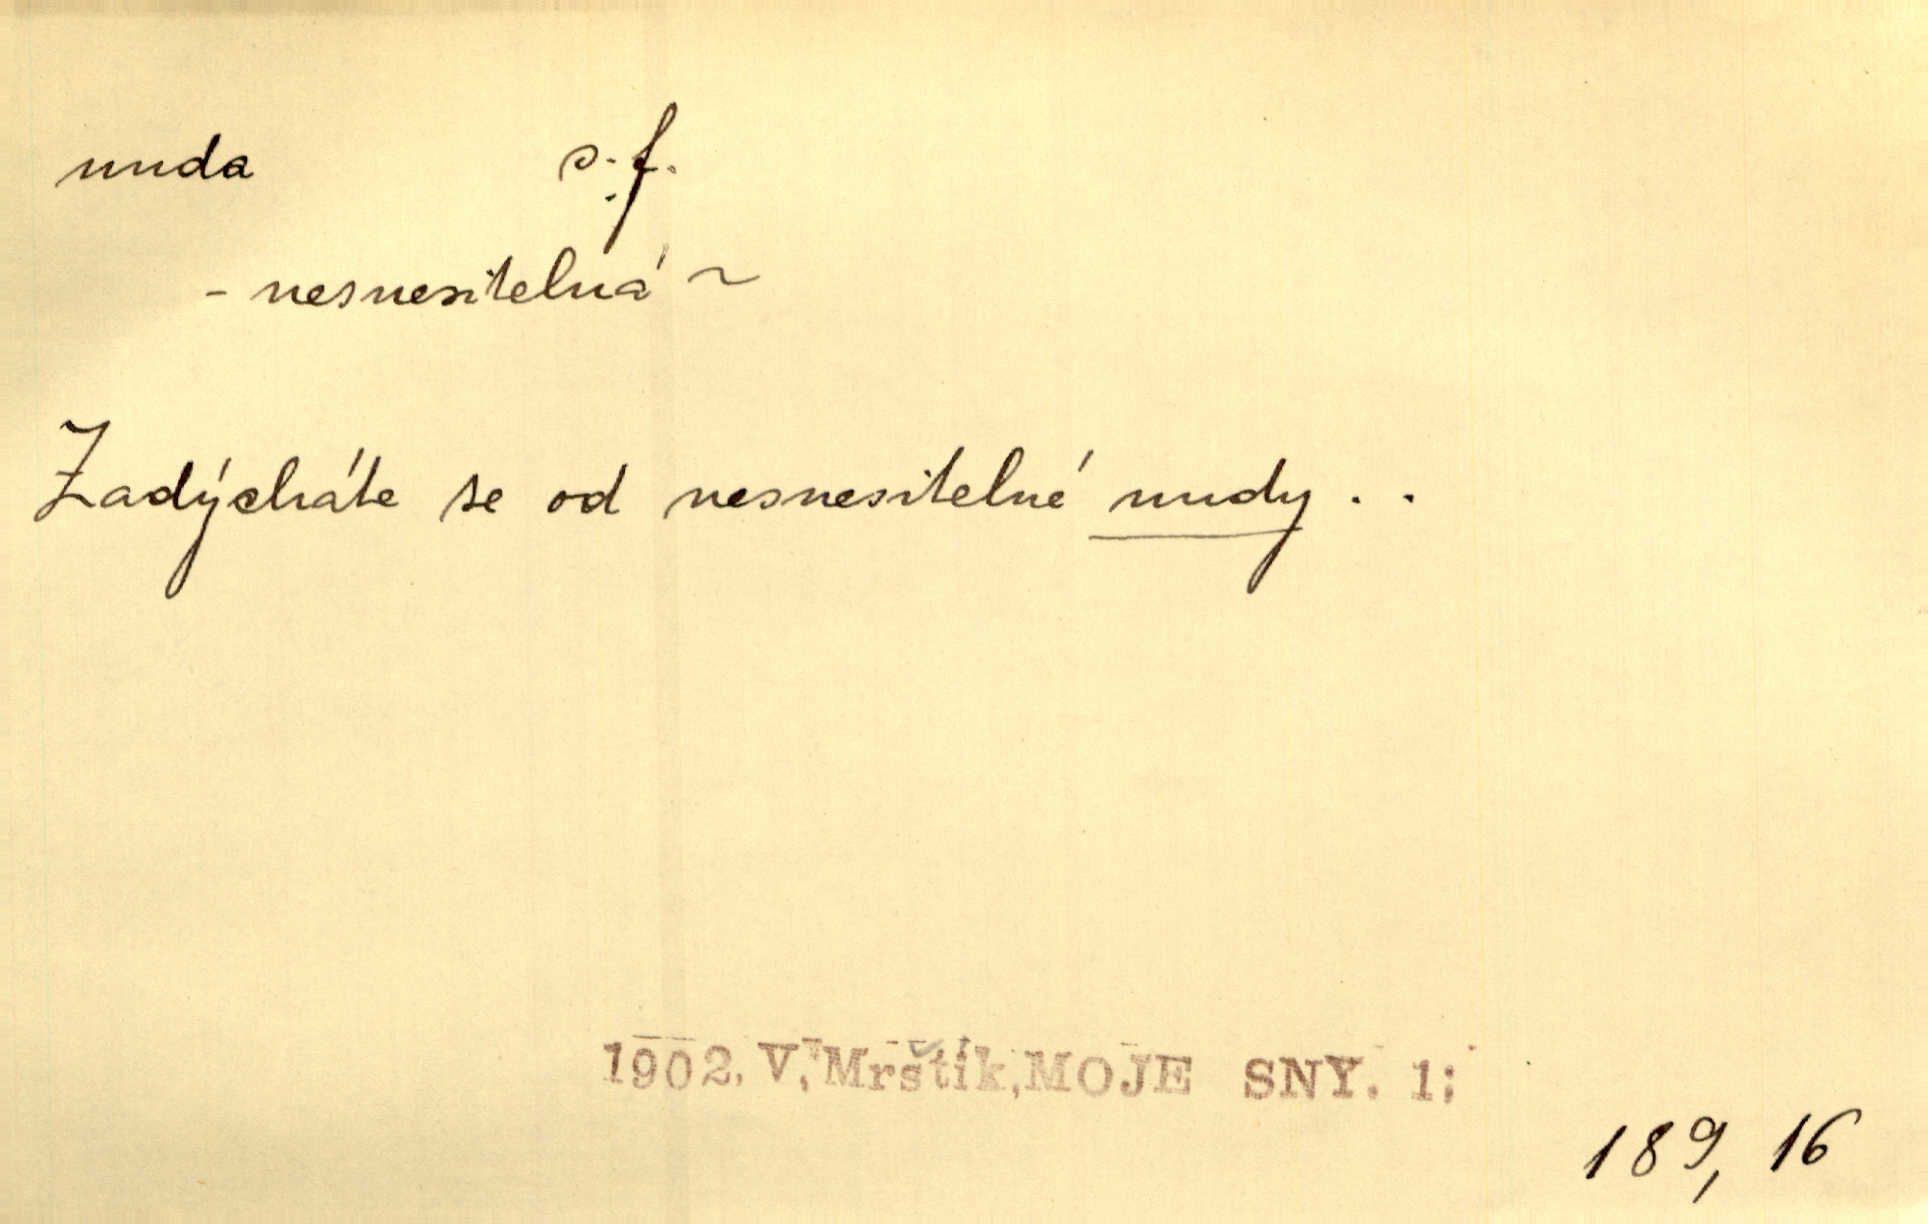 nuda s. f.
- nesnesitelná ~
Zadýcháte se od nesnesitelné nudy . .
1902. V. Mrštík, MOJE SNY. 1;
189, 16